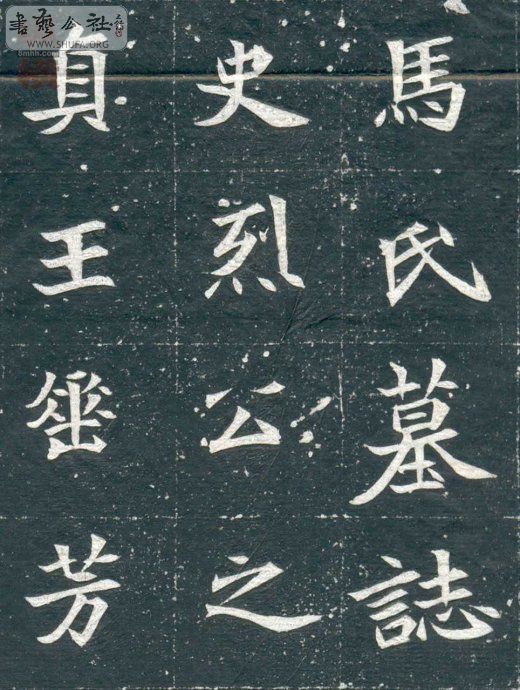 書藝公社
WWW.SHUFA.ORG
馬氏墓誌
史烈公之
貞王垂芳